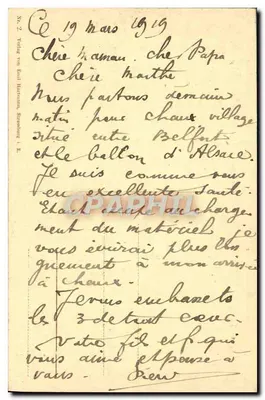 Ce 19 mars 1919
Chère maman, cher Papa
Chère Marthe
Nous partons demain
matin pour chaux village
situé entre Belfort
et le ballon d'Alsace.
Je suis comme vous
en excellente santé
Etant au charge
ment du matériel je
vous écrirai plus lon
guement à mon arrivée
à chaux.
Je vous embrasse ts
les 3 de tout cœur.
Votre fils et f. qui
vous aime et pense à
vous.
No. 2. Verlag von Emil Hartmann, Strassburg i. E.
CPAPHIL